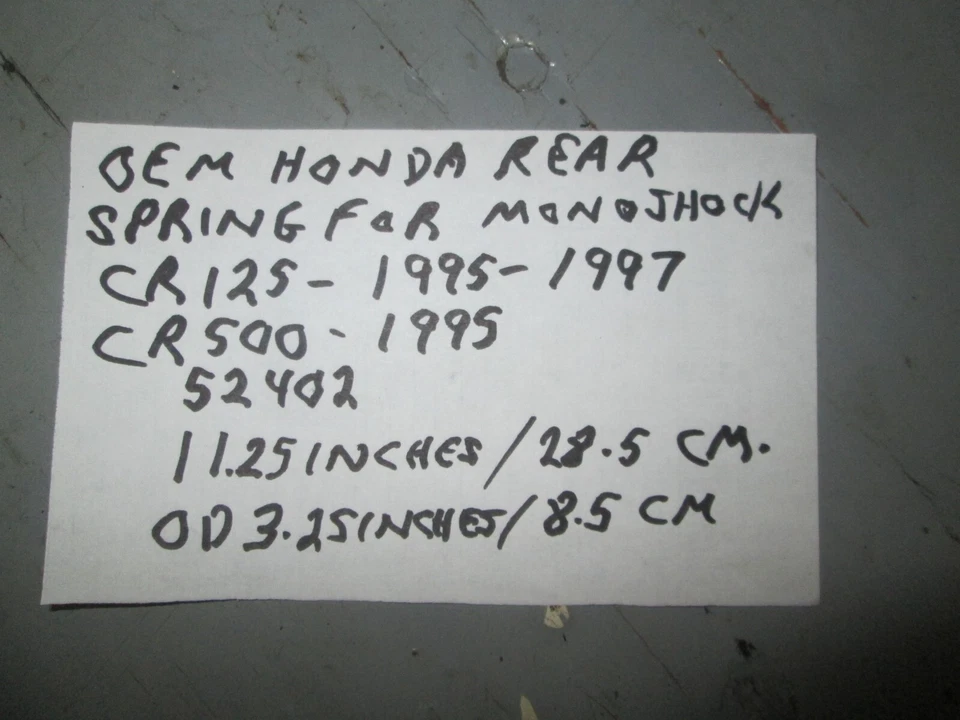 OEM HONDA REAR
SPRING FOR MONOSHOCK
CR125- 1995-1997
CR500- 1995
52402
11.25 INCHES/28.5 CM.
OD 3.25 INCHES/8.5 CM